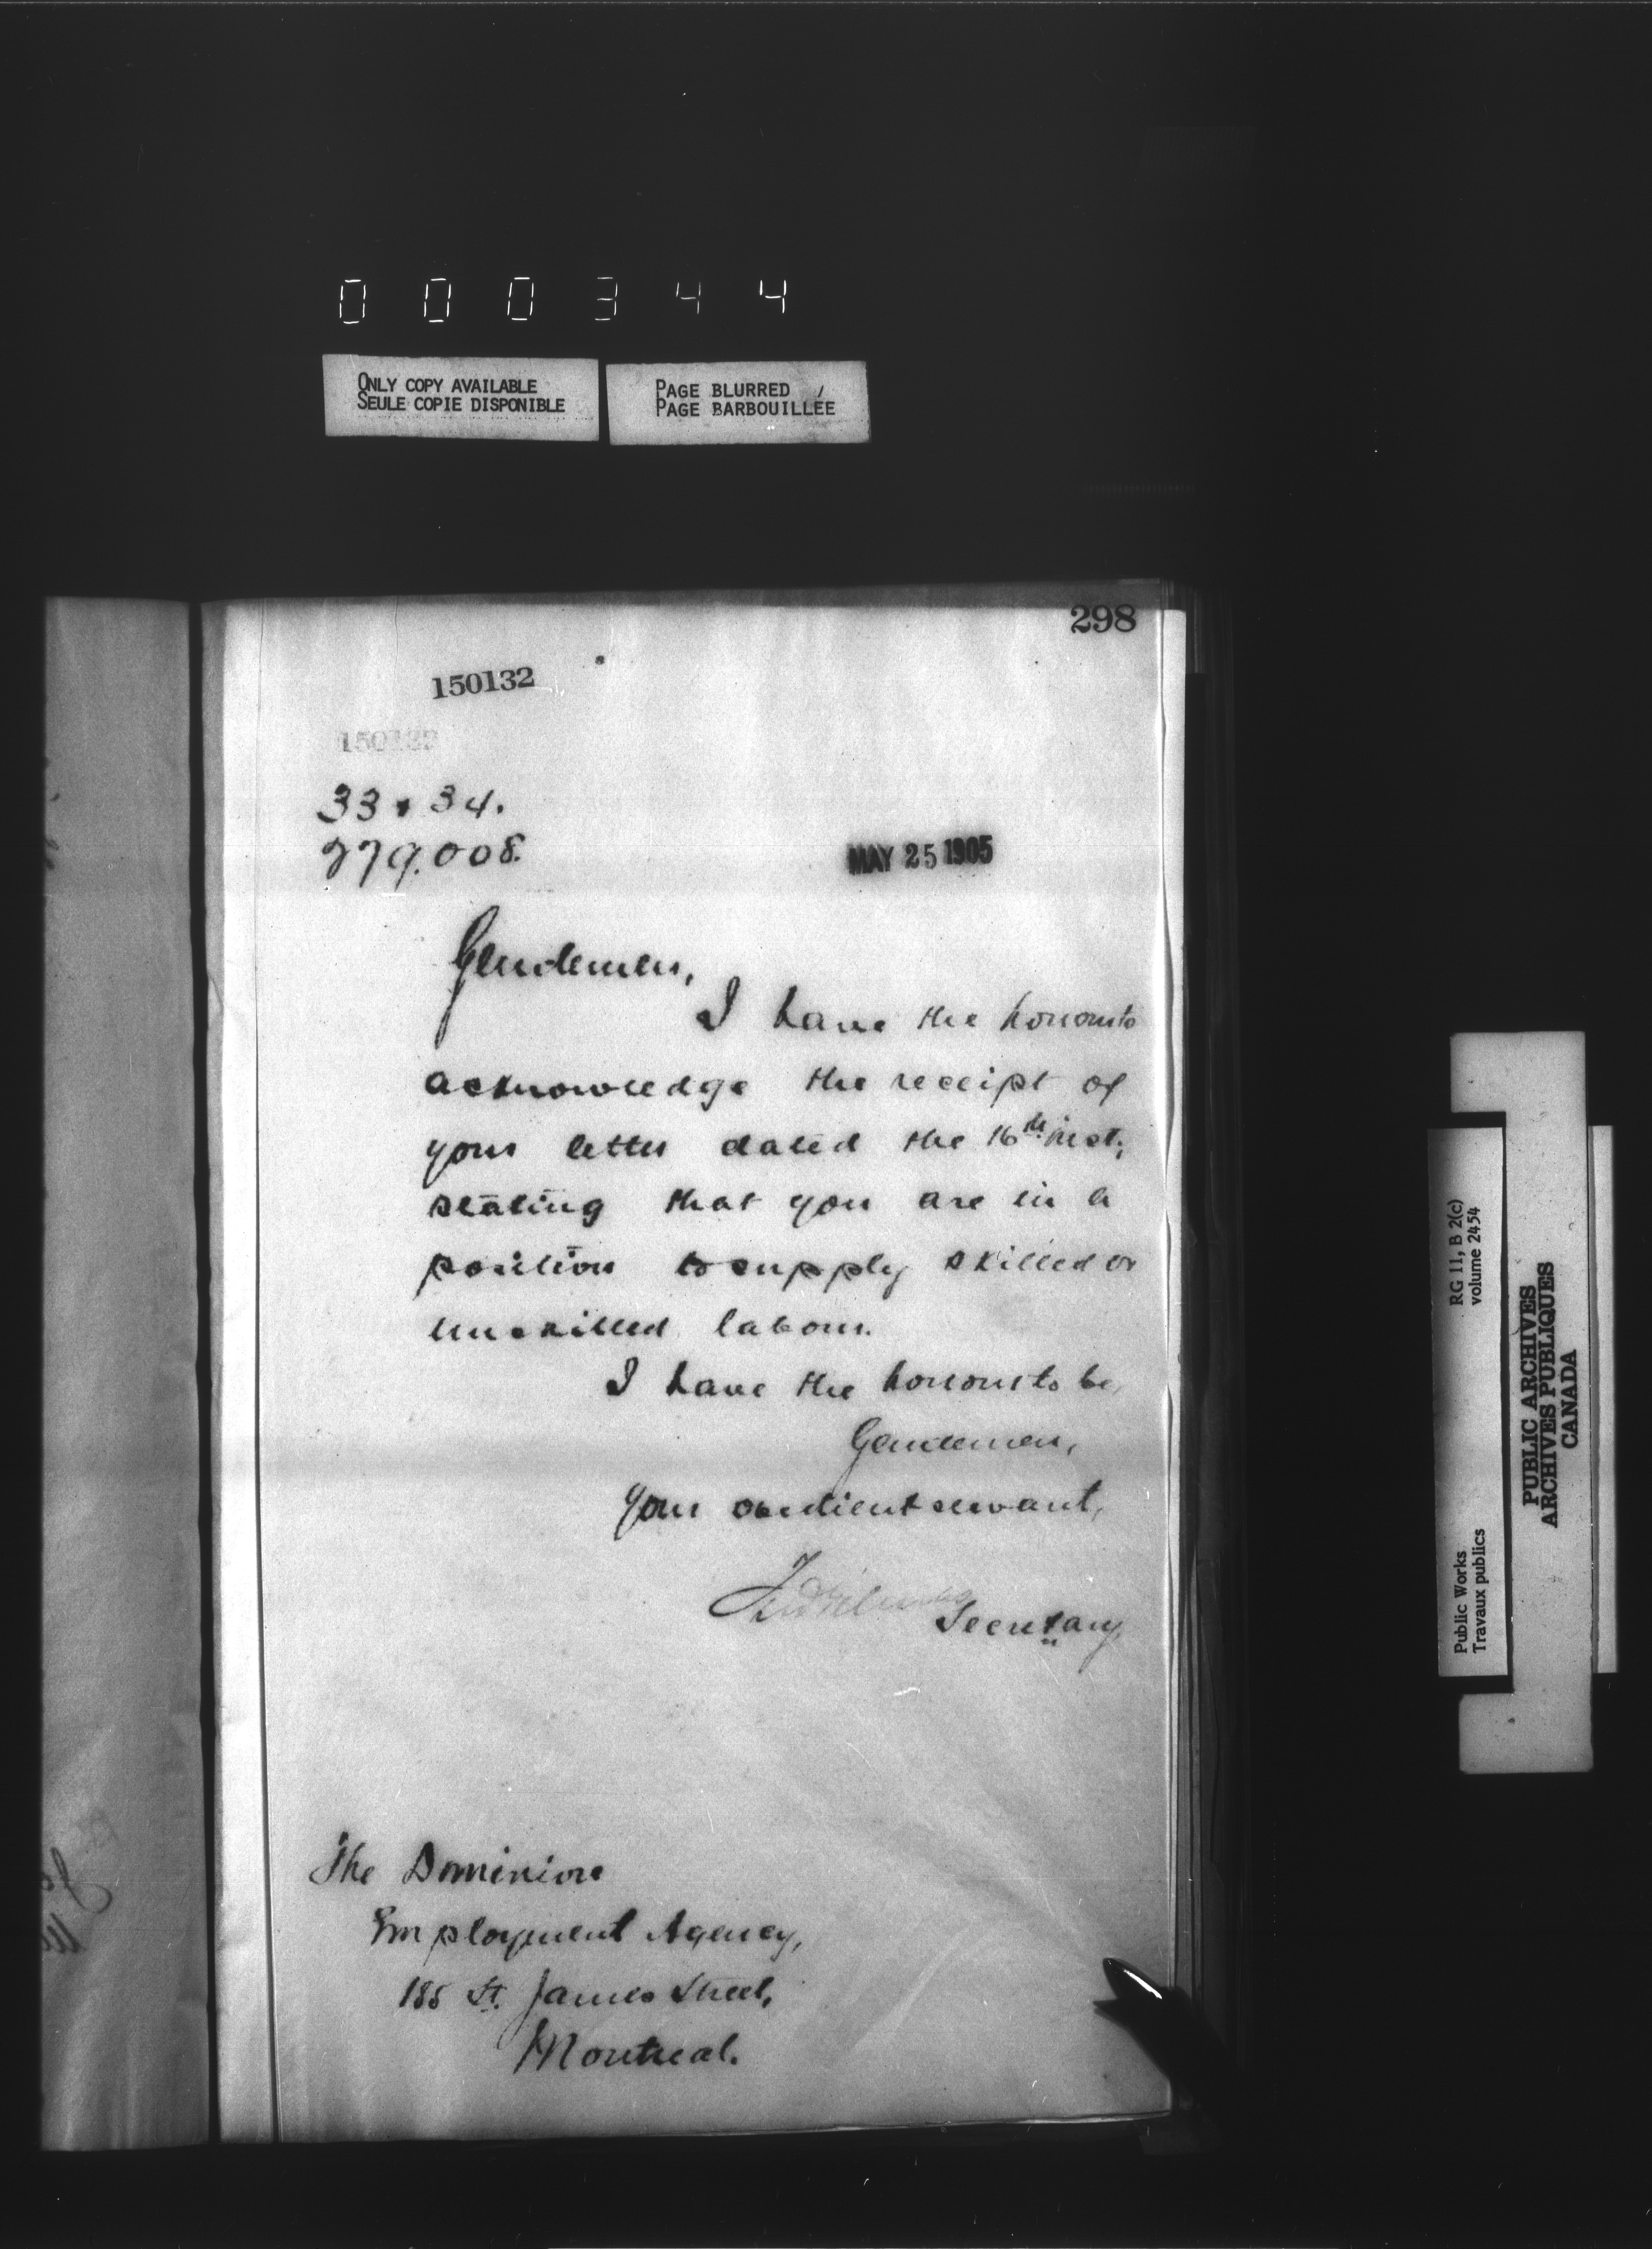 000344
ONLY COPY AVAILABLE
SEULE COPIE DISPONIBLE
PAGE BLURRED
PAGE BARBOUILLÉE
298
150132
150132
33 & 34.
279.008.
MAY 25 1905
Gentlemen,
I have the honour to
acknowledge the receipt of
your letter dated the 16th inst,
stating that you are in a
position to supply skilled or
unskilled labour.
I have the honour to be,
Gentlemen,
Your obedient servant,
Secretary.
The Dominion
Employment Agency,
185 St. James Street,
Montreal.
Public Works
Travaux publics
RG 11, B 2(c)
volume 2454
PUBLIC ARCHIVES
ARCHIVES PUBLIQUES
CANADA